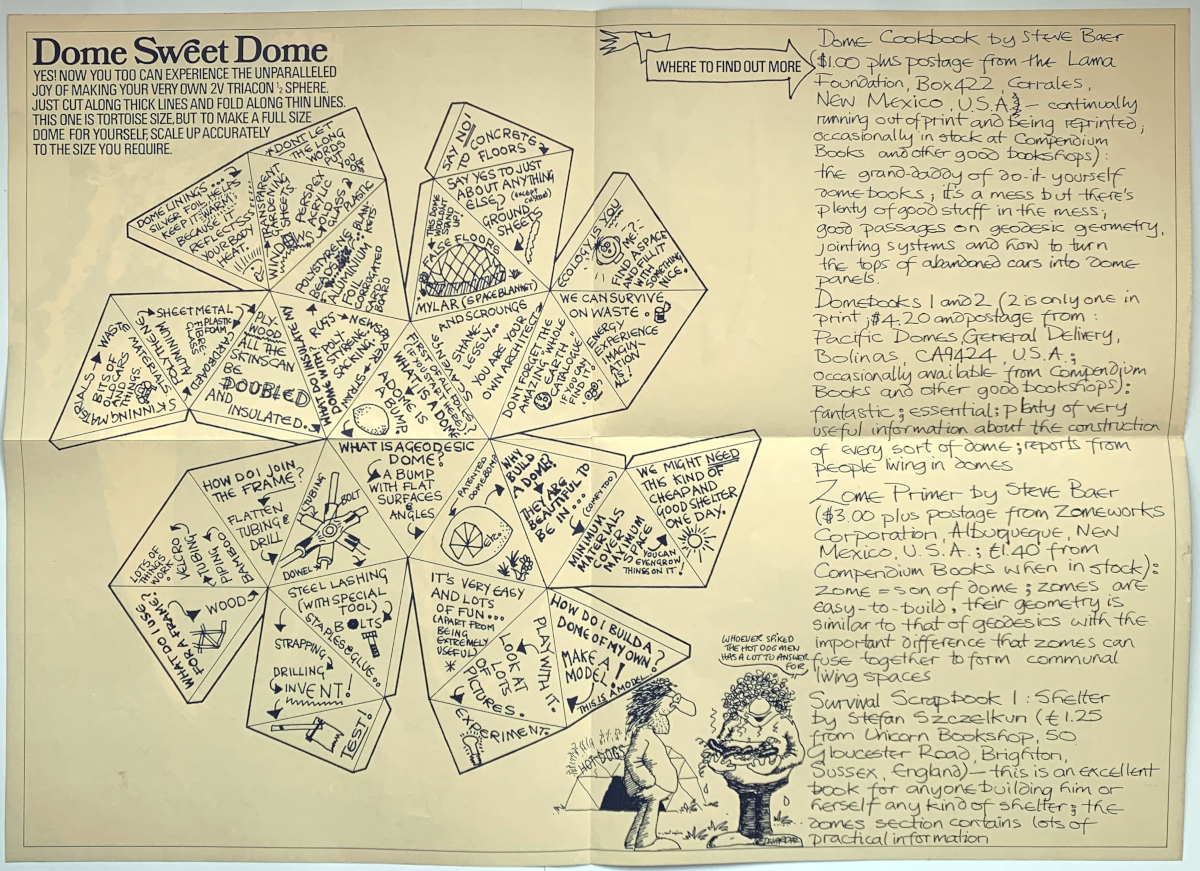 Dome Sweet Dome
YES! NOW YOU TOO CAN EXPERIENCE THE UNPARALLELED
JOY OF MAKING YOUR VERY OWN 2V TRIACON ½ SPHERE.
JUST CUT ALONG THICK LINES AND FOLD ALONG THIN LINES.
THIS ONE IS TORTOISE SIZE, BUT TO MAKE A FULL SIZE
DOME FOR YOURSELF, SCALE UP ACCURATELY
TO THE SIZE YOU REQUIRE.
*DONT LET
THE LONG
WORDS
PUT
YOU OFF
DOME LININGS...
SILVER FOIL HELPS
KEEP IT WARM:
BECAUSE IT
REFLECTS
YOUR BODY
HEAT.
TRANSPARENT
GARDENING
SHEETS
PERSPEX
ACRYLIC
OLD
GLASS
PLASTIC
WIND
POLYSTYRENE
BEADS
ALUMINIUM
FOIL
CORRUGATED
CARD
BOARD
BLAN-
KETS
SAY NO!
TO CONCRETE
FLOORS
SAY YES TO JUST
ABOUT ANYTHING
ELSE?
(EXCEPT
CUSTARD)
GROUND
SHEETS
THIS DOME
WOULDN'T
STAND
UP!
FALSE FLOORS
MYLAR (SPACE BLANKET)
ECOLOGY IS YOU
ME?
FIND A SPACE
AND FILL IT
WITH
SOMETHING
NICE.
WE CAN SURVIVE
ON WASTE.
ENERGY
EXPERIENCE
IMAGIN-
ATION
DON'T FORGET THE
AMAZING WHOLE
EARTH
CATALOGUE
IF YOU CAN
FIND IT
AND SCROUNGE
SHAME-
LESSLY..
YOU ARE YOUR
OWN ARCHITECT
FIRST OF ALL FOLKS
(IF YOU START HERE)
WHAT IS A DOME?
A DOME IS
A BUMP
WHAT DO I INSULATE MY
DOME WITH?
RUGS
NEWSPAPER
POLY-
STYRENE
SACKING
STRAW
PLY-
WOOD
ALL THE
SKINS CAN
BE
DOUBLED
AND
INSULATED.
SHEET METAL
PLASTIC
FOAM
FIBRE
GLASS
CARDBOARD
ALUMINIUM
POLYTHENE
SKINNING MATERIALS
WASTE
BITS OF
OLD CARS
AND
THINGS
STRAW
WHAT IS A GEODESIC
DOME?
A BUMP
WITH FLAT
SURFACES
AND
ANGLES
PATENTED
DOME BUMP
etc.
WHY
BUILD
A DOME?
THEY ARE
BEAUTIFUL TO
BE IN...
(COMFY TOO)
MINIMUM
MATERIALS
COVER
MAXIMUM
SPACE
WE MIGHT NEED
THIS KIND OF
CHEAP AND
GOOD SHELTER
ONE DAY.
YOU CAN
EVEN GROW
THINGS ON IT!
HOW DO I JOIN
THE FRAME?
FLATTEN
TUBING &
DRILL
TUBING
BOLT
DOWEL
LOTS OF
THINGS
WORK
VELCRO
TUBING
PIPING
BAMBOO
WHAT DO I USE
FOR A FRAME?
WOOD
STEEL LASHING
(WITH SPECIAL
TOOL)
BOLTS
STAPLES & GLUE..
STRAPPING
DRILLING
INVENT!
TEST!
IT'S VERY EASY
AND LOTS
OF FUN...
(APART FROM
BEING
EXTREMELY
USEFUL)
*
LOOK AT
LOTS
OF
PICTURES.
EXPERIMENT.
PLAY WITH IT.
HOW DO I BUILD A
DOME OF MY OWN?
MAKE A
MODEL!
THIS IS A MODEL
HOT DOGS
WHOEVER SPIKED
THE HOT DOG MEN
HAS A LOT TO ANSWER
FOR
WHERE TO FIND OUT MORE
Dome Cookbook by Steve Baer
($1.00 plus postage from the Lama
Foundation, Box 422, Corrales,
New Mexico, U.S.A. — continually
running out of print and being reprinted,
occasionally in stock at Compendium
Books and other good bookshops):
the grand-daddy of do-it-yourself
dome books; it's a mess but there's
plenty of good stuff in the mess;
good passages on geodesic geometry,
jointing systems and how to turn
the tops of abandoned cars into dome
panels.
Domebooks 1 and 2 (2 is only one in
print, $4.20 and postage from:
Pacific Domes, General Delivery,
Bolinas, CA9424, U.S.A.;
occasionally available from Compendium
Books and other good bookshops):
fantastic; essential; plenty of very
useful information about the construction
of every sort of dome; reports from
people living in domes
Zome Primer by Steve Baer
($3.00 plus postage from Zomeworks
Corporation, Albuquerque, New
Mexico, U.S.A.; £1.40 from
Compendium Books when in stock):
zome = son of dome; zomes are
easy-to-build, their geometry is
similar to that of geodesics with the
important difference that zomes can
fuse together to form communal
living spaces
Survival Scrapbook 1: Shelter
by Stefan Szczelkun (£1.25
from Unicorn Bookshop, 50
Gloucester Road, Brighton,
Sussex, England) — this is an excellent
book for anyone building him or
herself any kind of shelter; the
domes section contains lots of
practical information